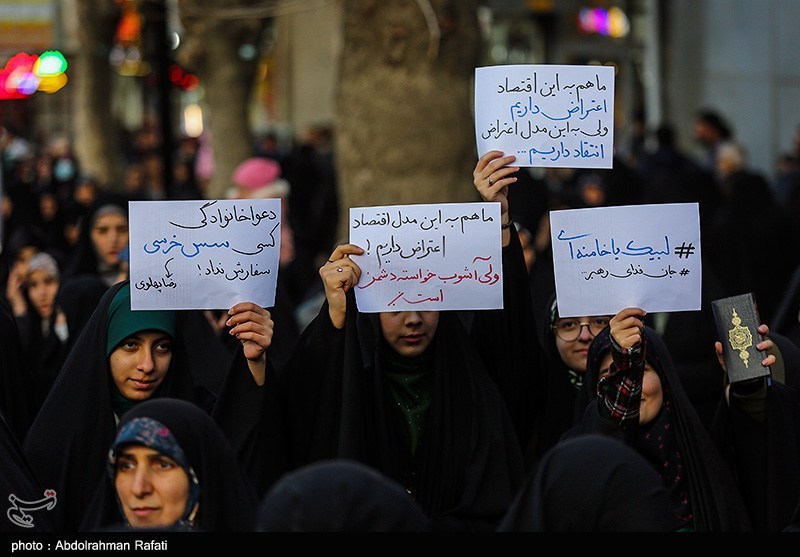 ما هم به این اقتصاد
اعتراض داریم
ولی به این مدل اعتراض
انتقاد داریم...
دعوا خانوادگی
کسی سس خرسی
سفارش نداد!
رضا پهلوی
ما هم به این مدل اقتصاد
اعتراض داریم!
ولی آشوب خواسته دشمن
است!
#لبیک یا خامنه ای
#جان فدای رهبر..
تسنیم
photo : Abdolrahman Rafati